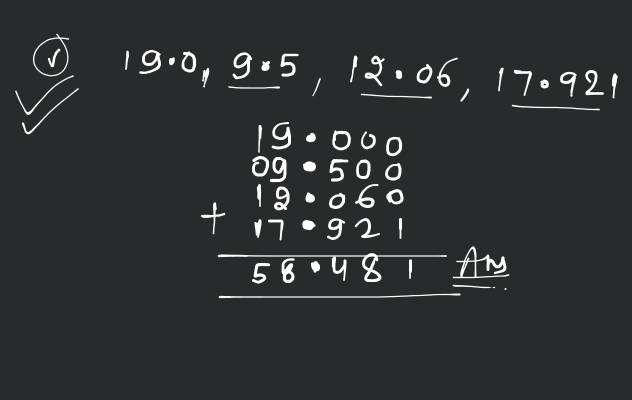 (v) 19.0, 9.5, 12.06, 17.921
19.000
09.500
12.060
+ 17.921
58.481 Ans